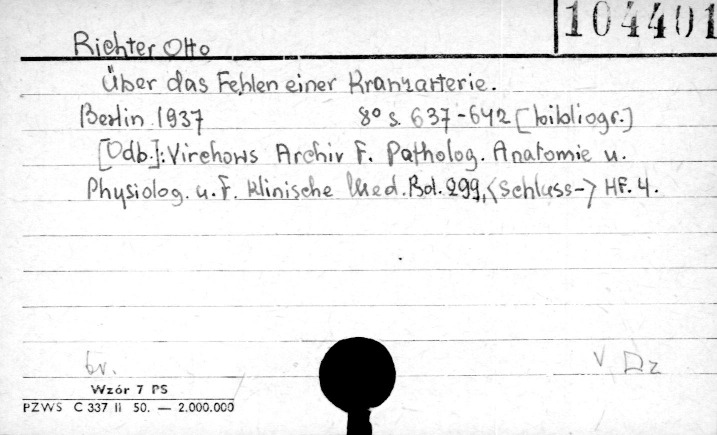 104401
Richter Otto
Über das Fehlen einer Kranzarterie.
Berlin 1937 8° s. 637-642 [bibliogr.]
[Odb.]: Virchows Archiv f. Patholog. Anatomie u.
Physiolog. u. f. klinische Med. Bd. 299, <Schluss-> Hf. 4.
br. V Dz
Wzór 7 PS
PZWS C 337 II 50. — 2.000.000